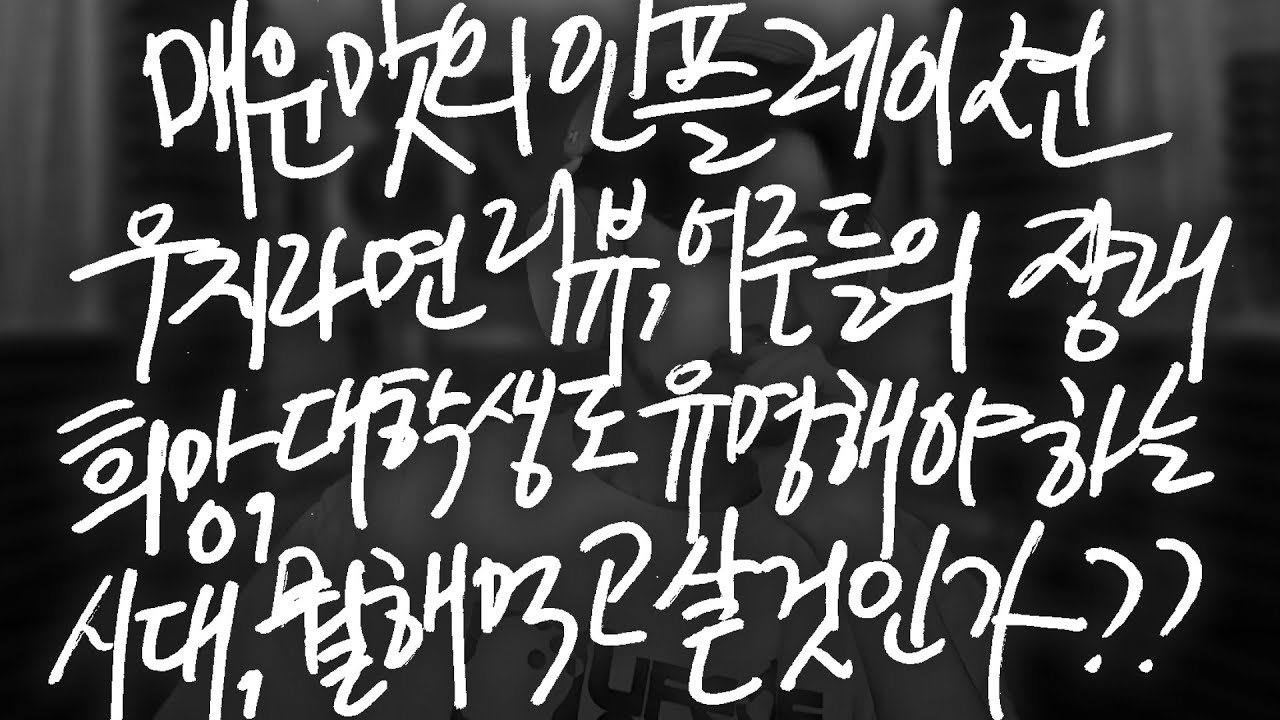 매운맛의 인플레이션
우지라면 리뷰, 어준들의 장래
희망, 대학생도 유명해야 하는
시대, 뭘해먹고 살것인가??